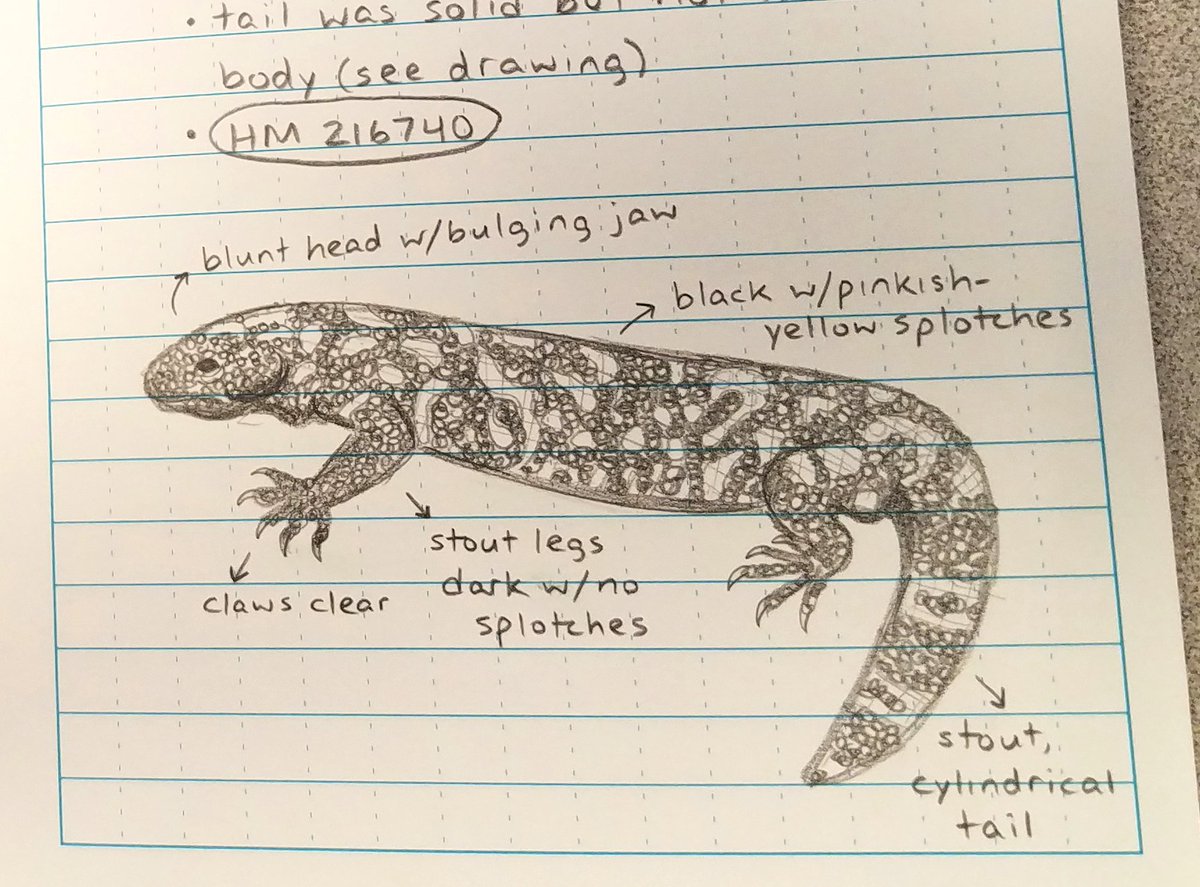 • tail was solid but
body (see drawing)
• HM 216740
blunt head w/bulging jaw
black w/pinkish-
yellow splotches
stout legs
dark w/no
splotches
claws clear
stout,
cylindrical
tail